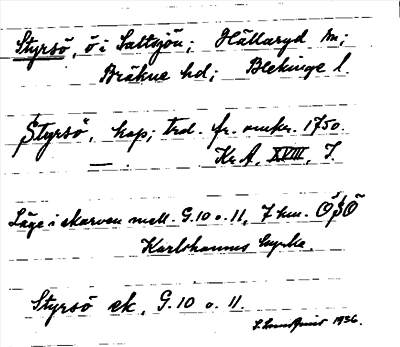 Styrsö, ö i Saltsjön; Hällaryd sn;
Bräkne hd; Blekinge l.
Styrsö, kop; trol. fr. omkr. 1750.
Kr A, XVIII, 7.
Läge i skarven mell. G.10 o. 11, 7 km. OSÖ
Karlshamns kyrka.
Styrsö ek, G.10 o. 11.
1936.